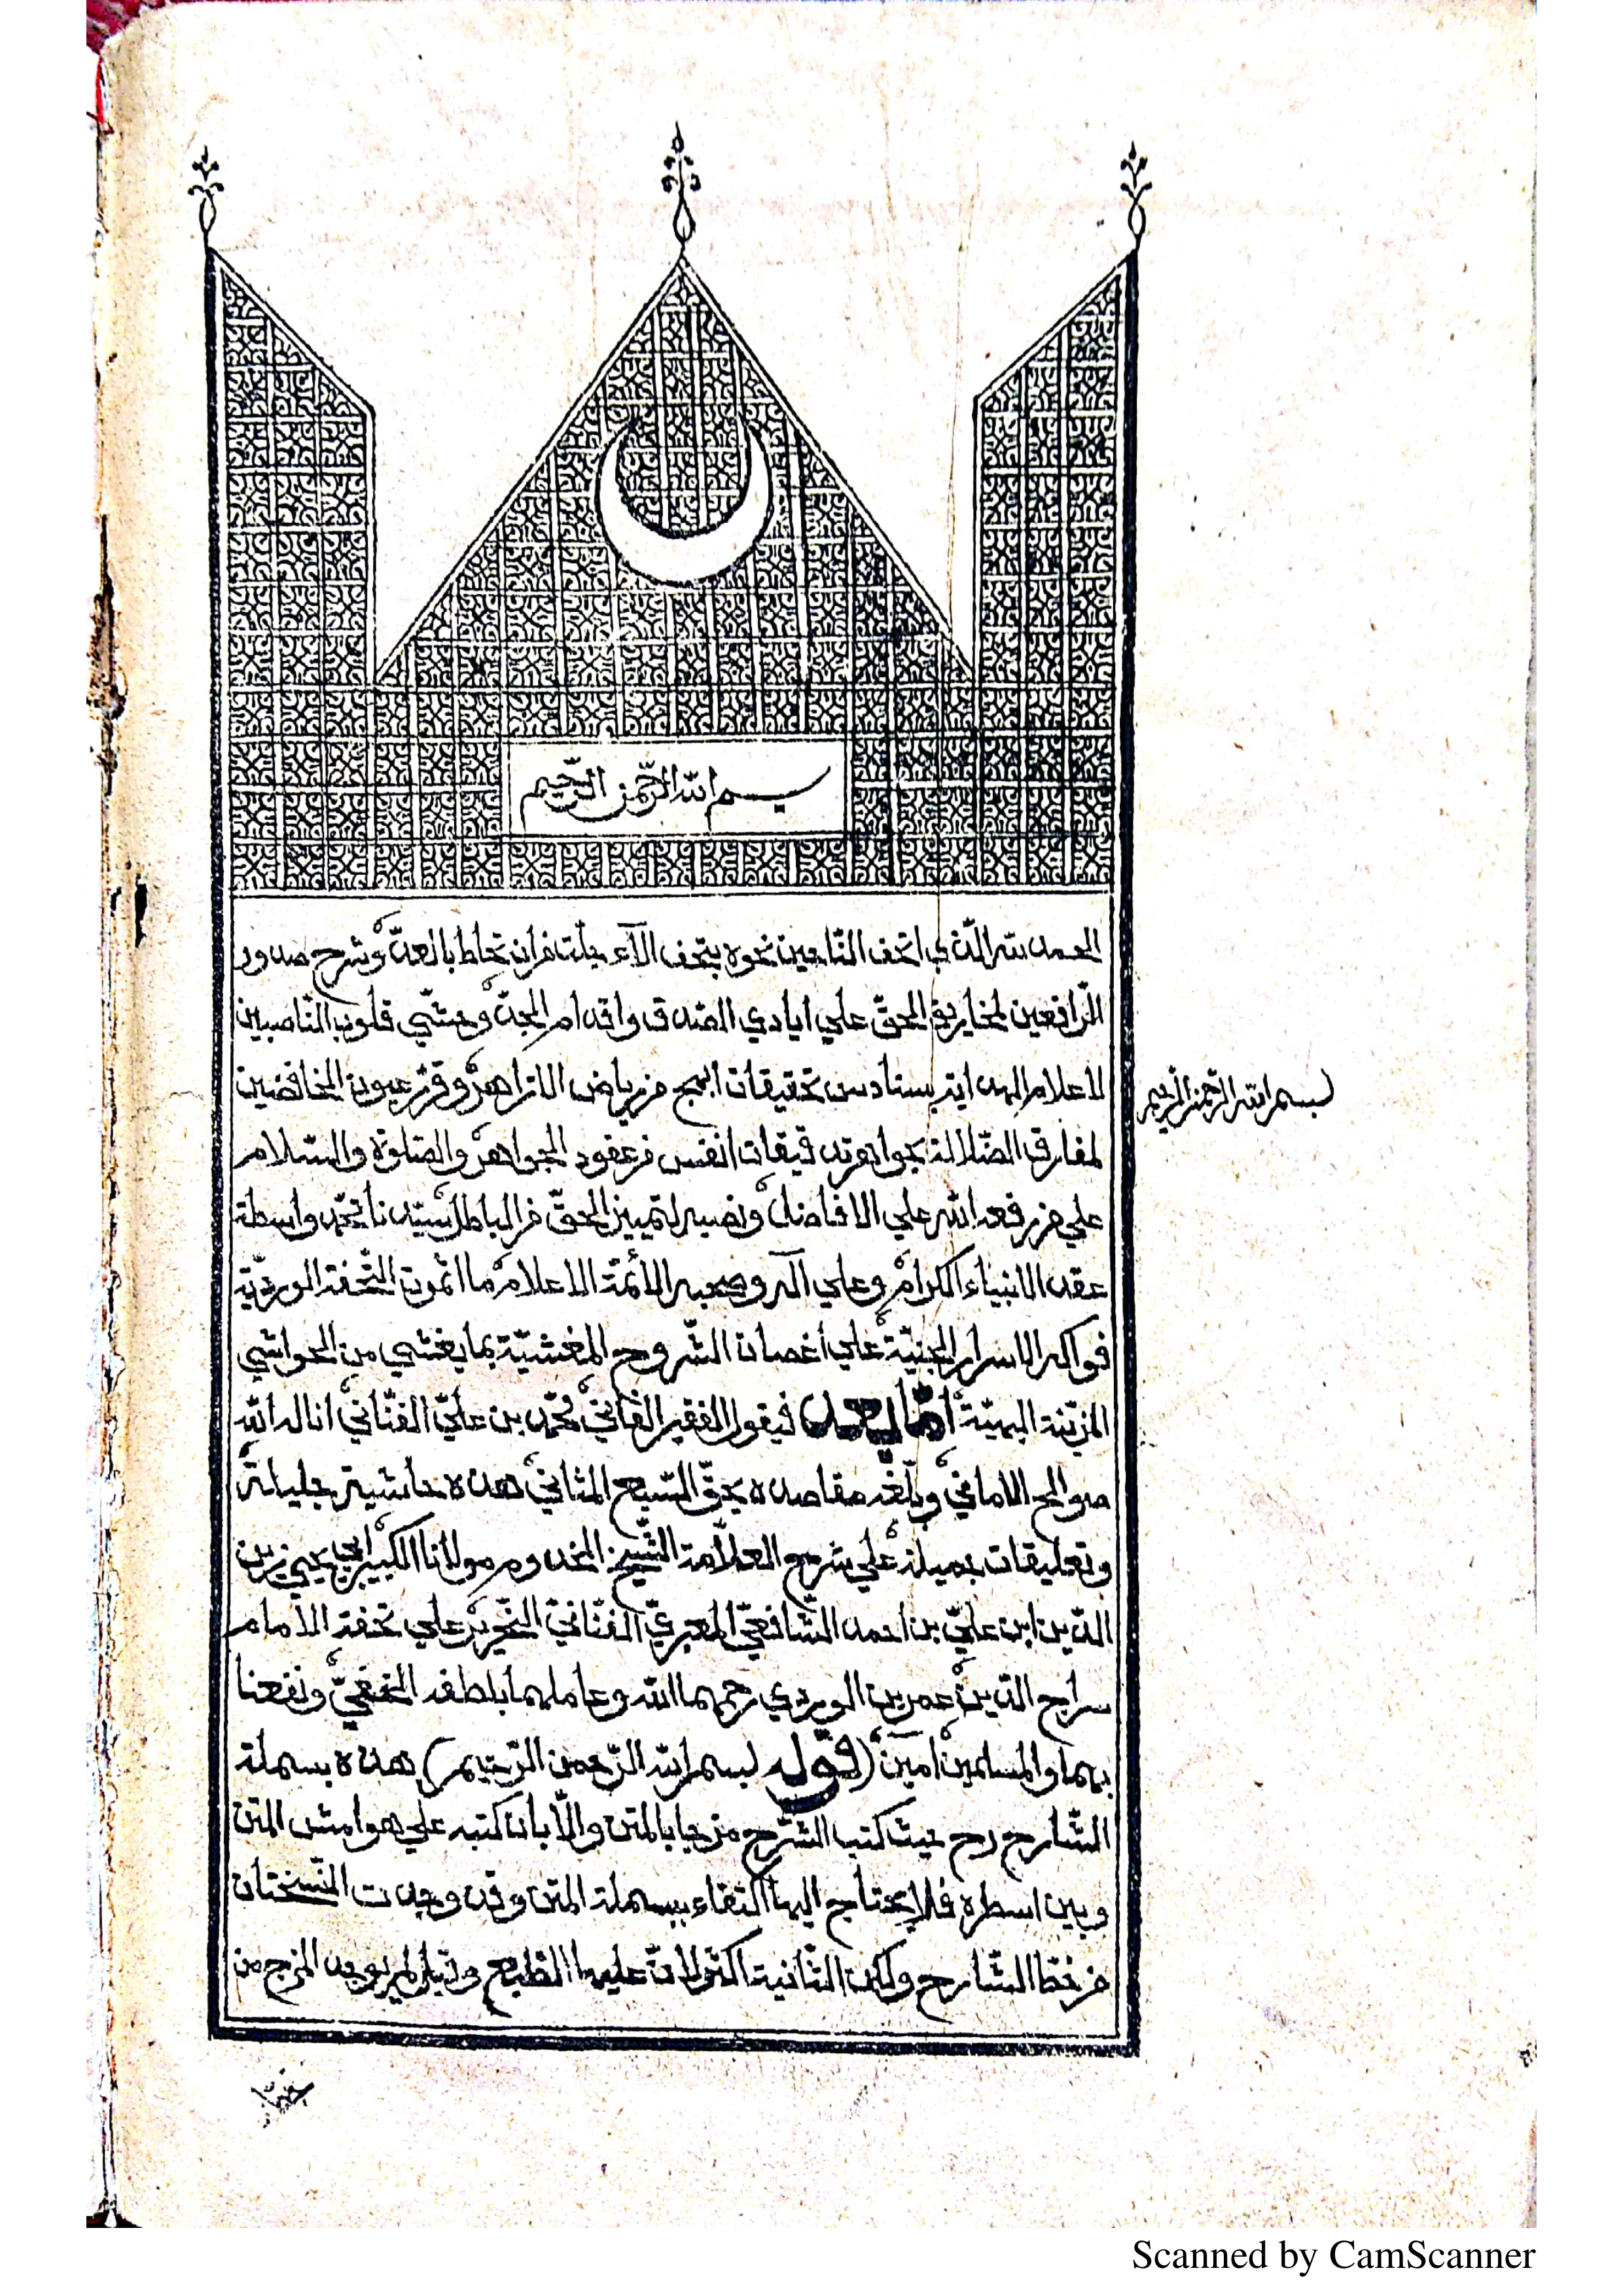 بسم الله الرّحمن الرّحيم
الحمد لله الّذي اتحف النّاحين نحوه بتحف الآء جلّت من ان تحاط بالعدّ وشرح صدور
الرّافعين لمخاريق الحقّ علي ايادي الصّدق واقدام الجدّ وحشّي قلوب النّاصبين
لاعلام الهداية بسنادس تحقيقات ابهج من رياض الازاهر وقرّ عيون الخافضين
لمفارق الضّلالة بجواهر تدقيقات انفس من عقود الجواهر والصّلوة والسّلام
علي من رفعه الله علي الافاضل ونصبه لتمييز الحقّ من الباطل سيّدنا محمّد واسطة
عقد الانبياء الكرام وعلي آله وصحبه الأئمّة الاعلام ما اثمرت التّحفة الورديّة
فواكه الاسرار الجنيّة علي اغصان الشّروح المغشيّة بما يغشي من الحواشي
المزيّنة البهيّة امّا بعد فيقول الفقير الفاني محمّد بن عليّ الفنّاني اناله الله
صوالح الاماني وبلّغه مقاصده بحقّ السّبع المثاني هذه حاشية جليلة
وتعليقات جميلة علي شرح العلّامة الشّيخ المخدوم مولانا الكبير ابي يحيي زين
الدّين ابن عليّ بن احمد الشّافعيّ المعبريّ الفنّانيّ النّحرير علي تحفة الامام
سراج الدّين عمر بن الوردي رحمهما الله وعاملهما بلطفه الخفيّ ونفعنا
بهما والمسلمين آمين (قوله بسم الله الرّحمن الرّحيم) هذه بسملة
الشّارح رح حيث كتب الشّرح مزجا بالمتن والّا بان كتبه علي هوامش المتن
وبين اسطره فلا يحتاج اليها اكتفاء ببسملة المتن وقد وجدت النّسختان
من خطّ الشّارح ولكن الثّانية اكثر لانّ عليها الطّبع وقيل لم يوجد المزج من
بسم الله الرّحمن الرّحيم